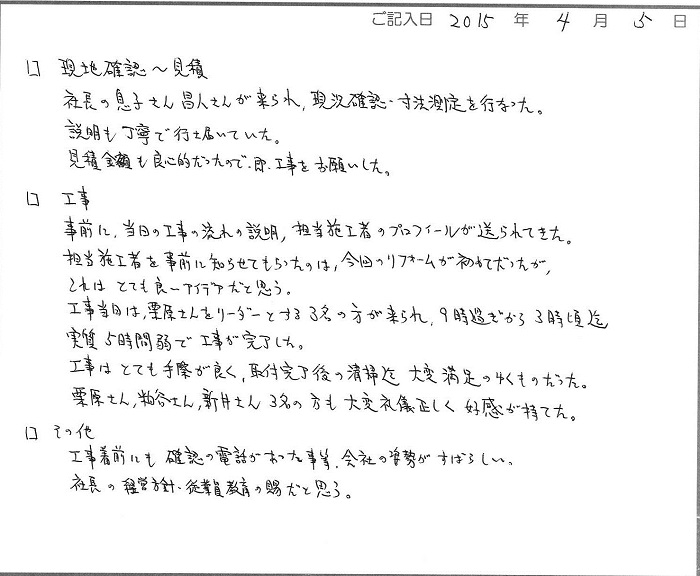 ご記入日 2015 年 4 月 5 日
□ 現地確認～見積
社長の息子さん昌人さんが来られ、現況確認・寸法測定を行なった。
説明も丁寧で行き届いていた。
見積金額も良心的だったので、即、工事をお願いした。
□ 工事
事前に、当日の工事の流れの説明、担当施工者のプロフィールが送られてきた。
担当施工者を事前に知らせてもらったのは、今回のリフォームが初めてだったが、
これはとても良いアイデアだと思う。
工事当日は、栗原さんをリーダーとする3名の方が来られ、9時過ぎから3時頃迄
実質5時間弱で工事が完了した。
工事はとても手際が良く、取付完了後の清掃迄大変満足のゆくものだった。
栗原さん、粕谷さん、新井さん3名の方も大変礼儀正しく好感が持てた。
□ その他
工事着前にも確認の電話があった事等、会社の姿勢がすばらしい。
社長の経営方針・従業員教育の賜だと思う。